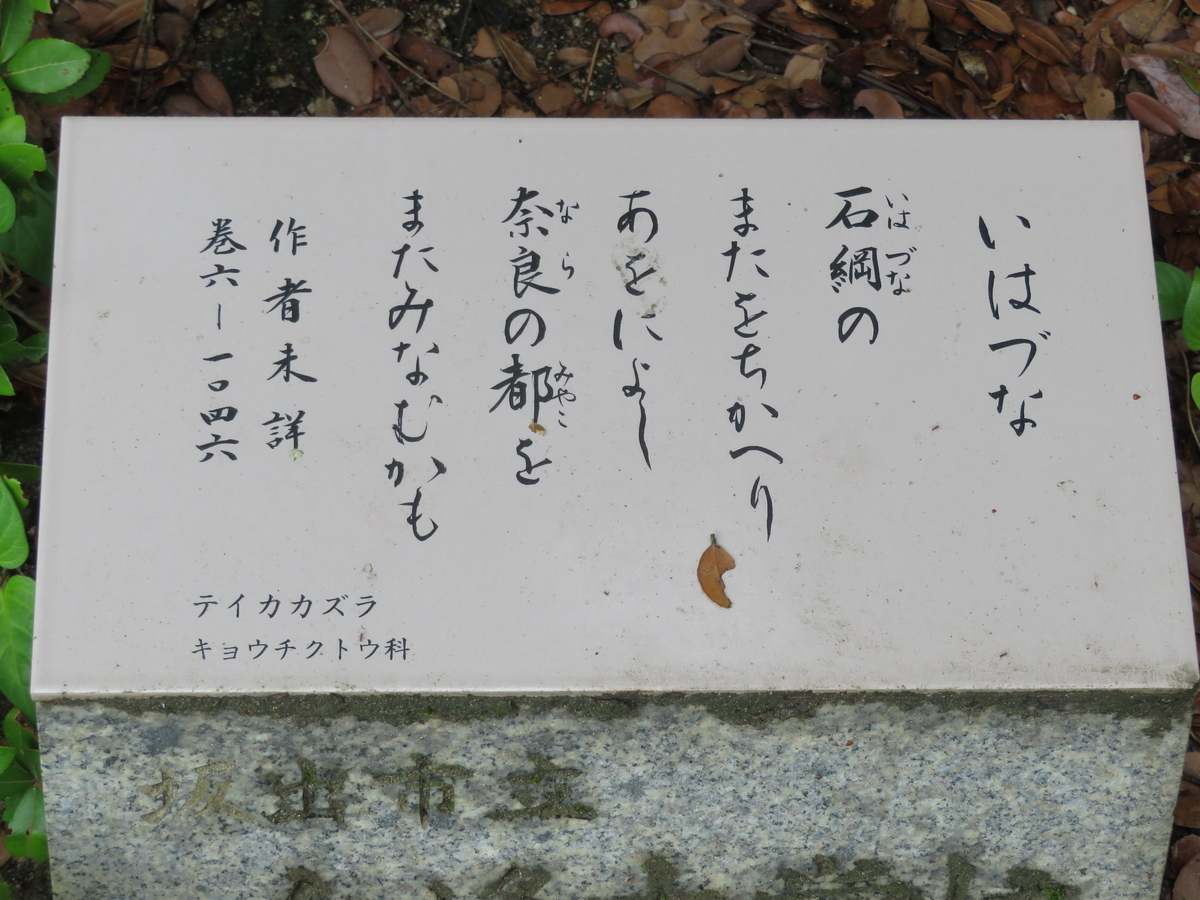 いはづな
石綱の
いはづな
またをちかへり
あをによし
奈良の都を
なら
みやこ
またみなむかも
作者未詳
巻六ー一〇四六
テイカカズラ
キョウチクトウ科
坂出市立